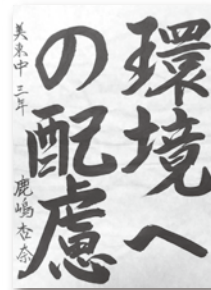 環境へ
の配慮
美東中 三年 鹿嶋杏奈